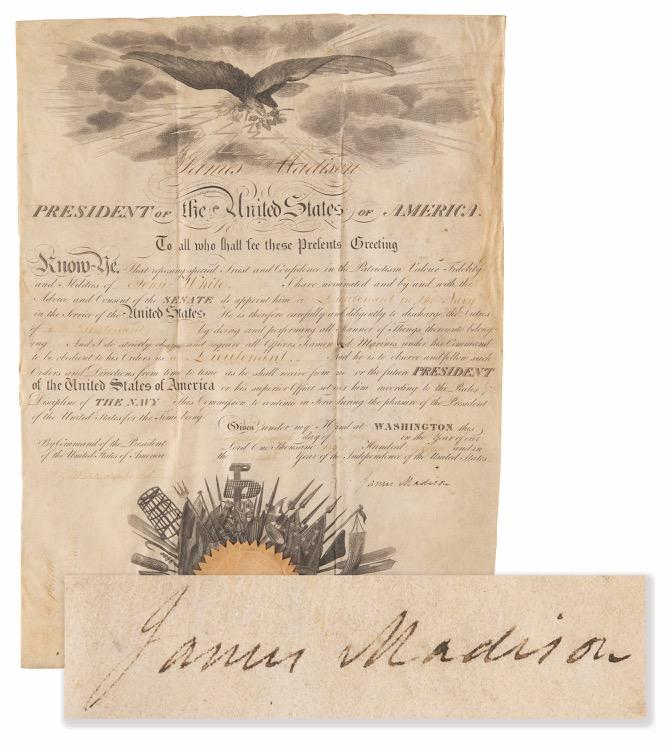 James Madison
PRESIDENT OF the United States, OF AMERICA.
To all who shall see these Presents Greeting
Know-Ye, That reposing special Trust and Confidence in the Patriotism Valour Fidelity
and Abilities of John White, I have nominated and by and with the
Advice and Consent of the SENATE do appoint him a Lieutenant in the Navy
in the Service of the United States He is therefore carefully and diligently to discharge the Duties
of a Lieutenant by doing and performing all Manner of Things thereunto belong
ing And I do strictly charge and require all Officers Seamen and Marines under his Command
to be obedient to his Orders as a Lieutenant And he is to observe and follow such
Orders and Directions from time to time as he shall receive from me or the future PRESIDENT
of the United States of America or his superior Officer set over him according to the Rules &
Discipline of THE NAVY This Commission to continue in Force during the pleasure of the President
of the United States for the Time being
Given under my Hand at WASHINGTON this
day of in the Year of our
Lord One Thousand Hundred and in
the Year of the Independence of the United States
By Command of the President
of the United States of America
James Madison
James Madison